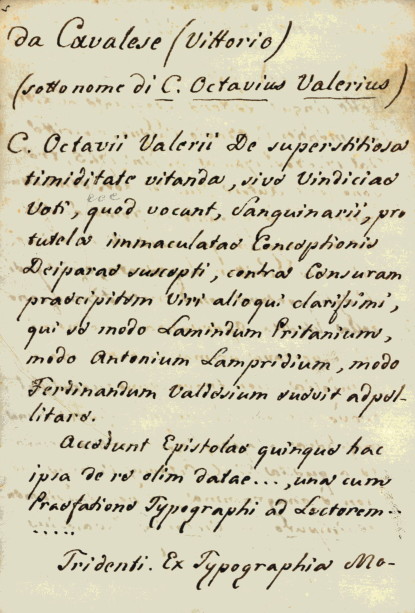 da Cavalese (Vittorio)
(sotto nome di C. Octavius Valerius)
C. Octavii Valerii De superstitiosa
timiditate vitanda, sive Vindiciae
Voti, quod vocant, Sanguinarii, pro
tutela immaculatae Conceptionis
Deiparae suscepti, contra Censuram
praecipitem Viri alioqui clarissimi,
qui se modo Lamindum Pritanium,
modo Antonium Lampridium, modo
Ferdinandum Valdesium suevit adpel-
litare.
Accedunt Epistolae quinque hac
ipsa de re olim datae..., una cum
Praefatione Typographi ad Lectorem..
.....
Tridenti. Ex Typographia Mo-